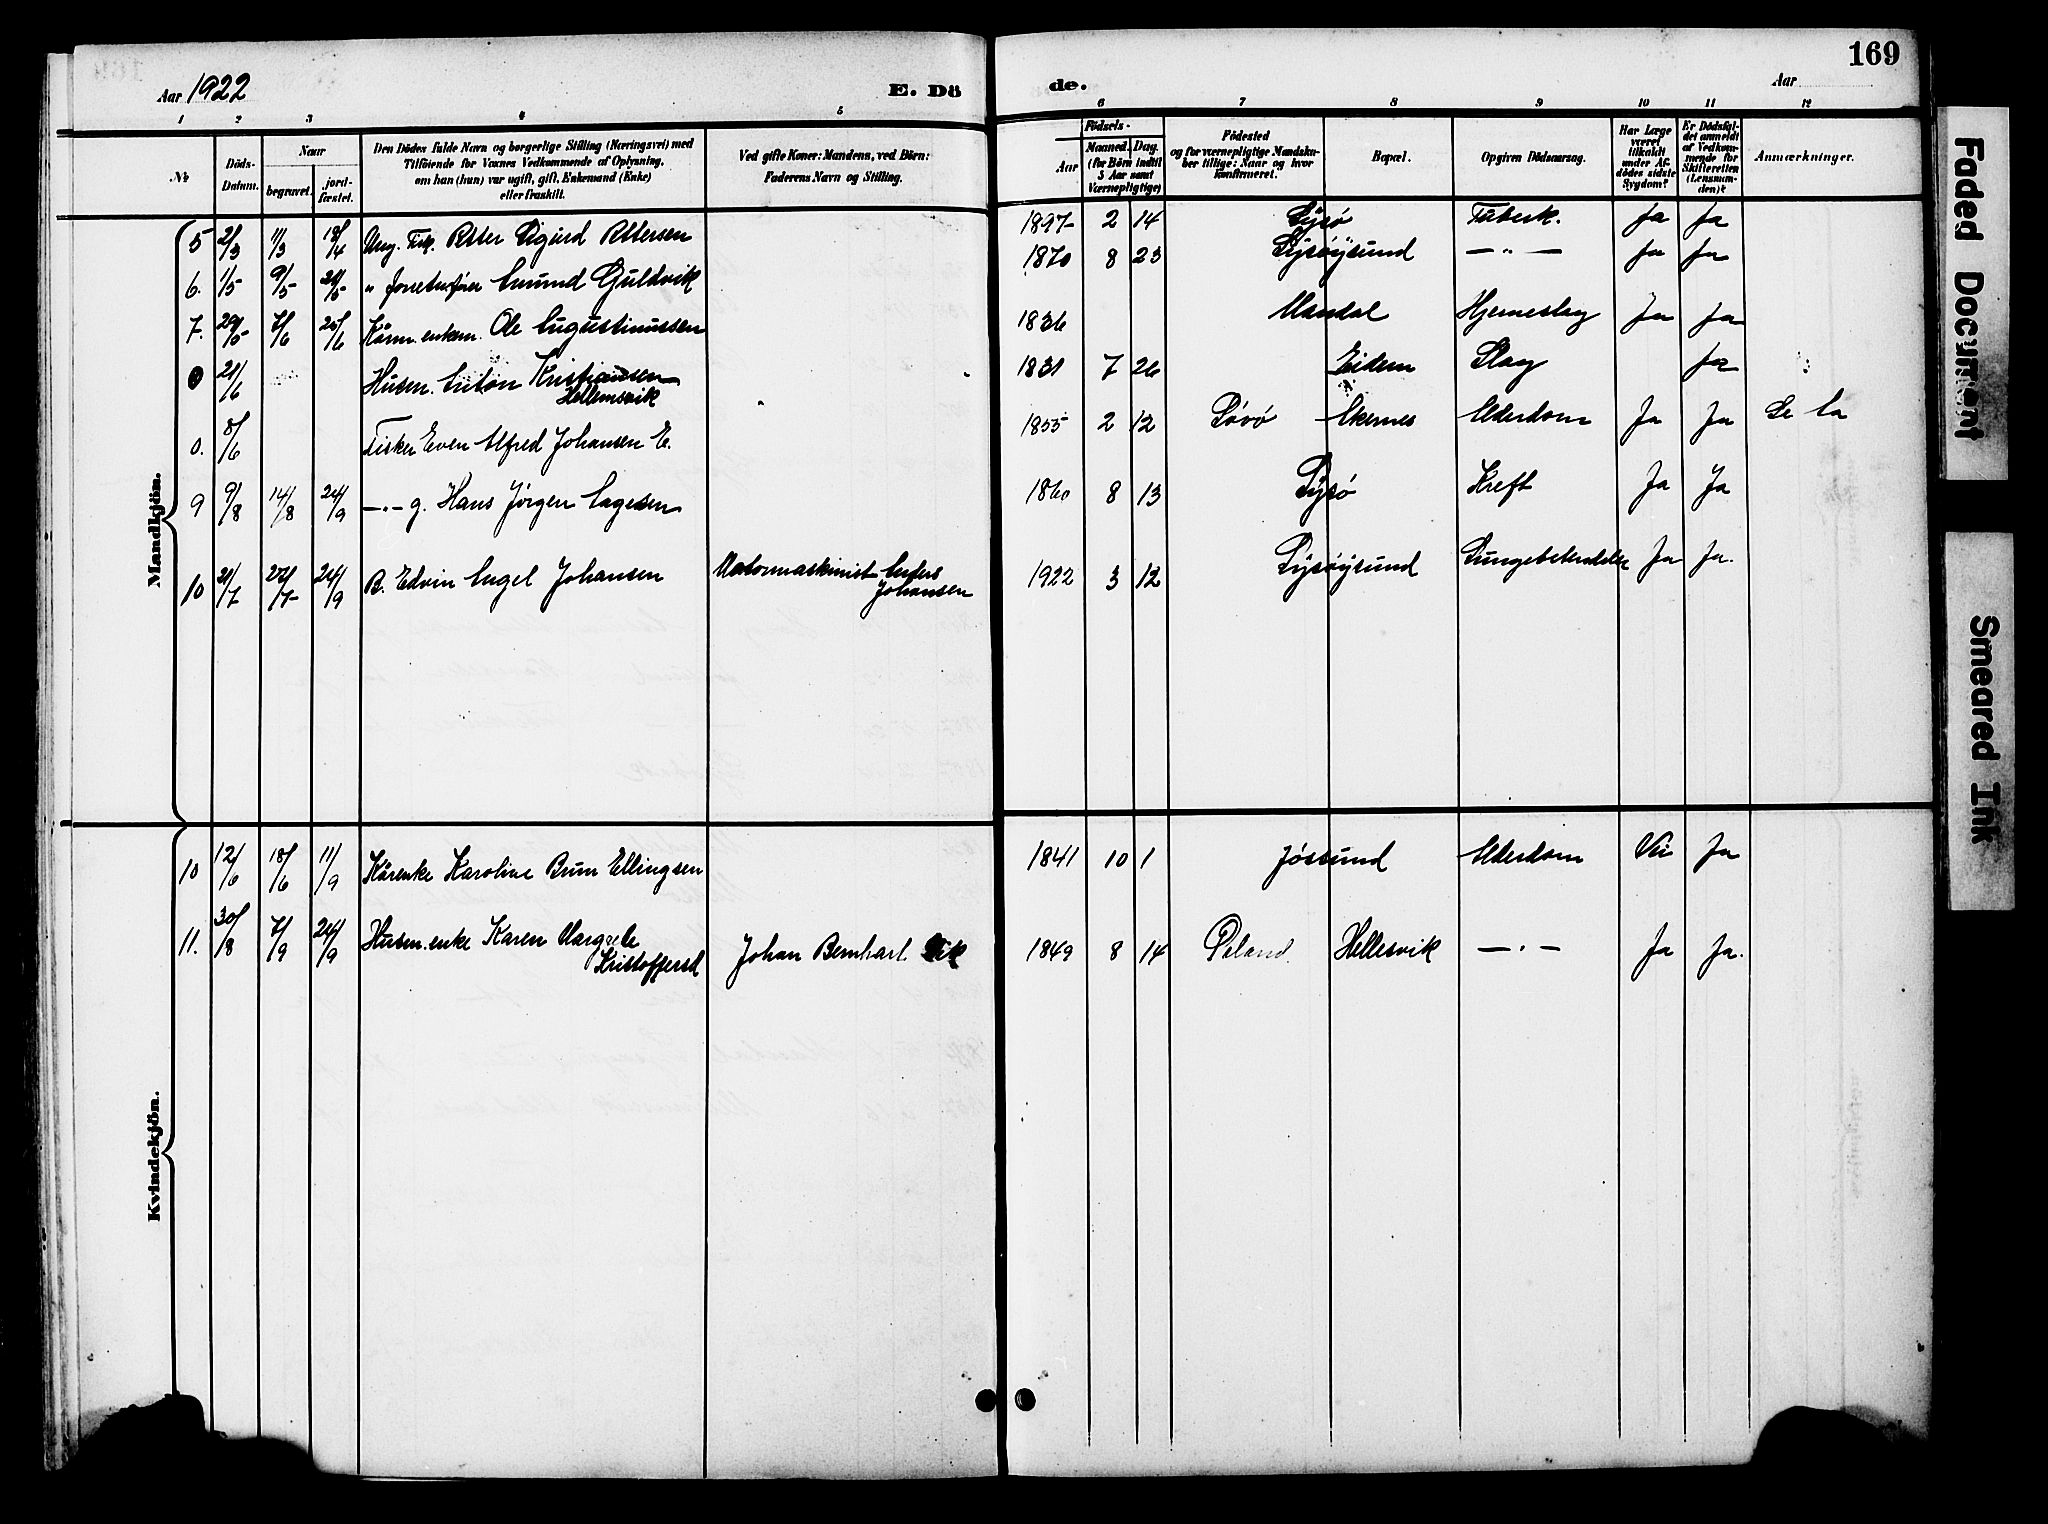 169
Aar 1922
E. Dö
de.
Aar
1 2 3 4 5
6 7 8 9 10 11 12
№
Döds-Datum.
Naar
begravet.
jord-fæstet.
Den Dödes fulde Navn og borgerlige Stilling (Næringsvei) med
Tilföiende for Voxnes Vedkommende af Oplysning,
om han (hun) var ugift, gift, Enkemand (Enke)
eller fraskilt.
Ved gifte Koner: Mandens, ved Börn:
Faderens Navn og Stilling.
Födsels-
Aar
Maaned. Dag.
(for Börn indtil
5 Aar samt
Værnepligtige)
Födested
og for værnepligtige Mandska-
ber tillige: Naar og hvor
konfirmeret.
Bopæl.
Opgiven Dödsaarsag.
Har Læge
været
tilkaldt
under Af-
dödes sidste
Sygdom?
Er Dödsfal-
det anmeldt
af Vedkom-
mende for
Skifteretten
(Lensman-
den)?
Anmærkninger.
Mandkjön.
5 2/3 11/3 18/4 Ung. Fisk. Petter Sigurd Pettersen 1897 2 14 Lysø Tuberk. Ja Ja
6. 1/5 9/5 21/5 " Amund Guldvik 1870 8 23 Lysøysund — " — Ja Ja
7. 29/5 7/6 25/6 Kårm. enkem. Ole Augustinussen 1836 Mandal Hjerneslag Ja Ja
21/6 Husm. Anton Kristiansen 1831 7 26 Eidem Slag Ja
Hellemsvik
0. 8/6 Fisker Even Alfred Johansen E. 1855 2 12 Løvø Akernes Alderdom Ja Ja
9 9/8 14/8 24/9 — " — g. Hans Jørgen Aagesen 1860 8 13 Lysø Kreft Ja Ja
10 21/7 27/7 24/9 B. Edvin Angel Johansen Motormaskinist Anders 1922 3 12 Lysøysund Lungebetendelse Ja Ja.
Johansen
Kvindekjön.
10 12/6 18/6 11/9 Kårenke Karoline Brun Ellingsen 1841 10 1 Jøssund Alderdom Nei Ja
11. 30/8 7/9 24/9 Husm. enke Karen Margrete Johan Bernhart 1849 8 14 Hellesvik — " — Ja Ja.
Kristoffersd
Faded Document
Smeared Ink